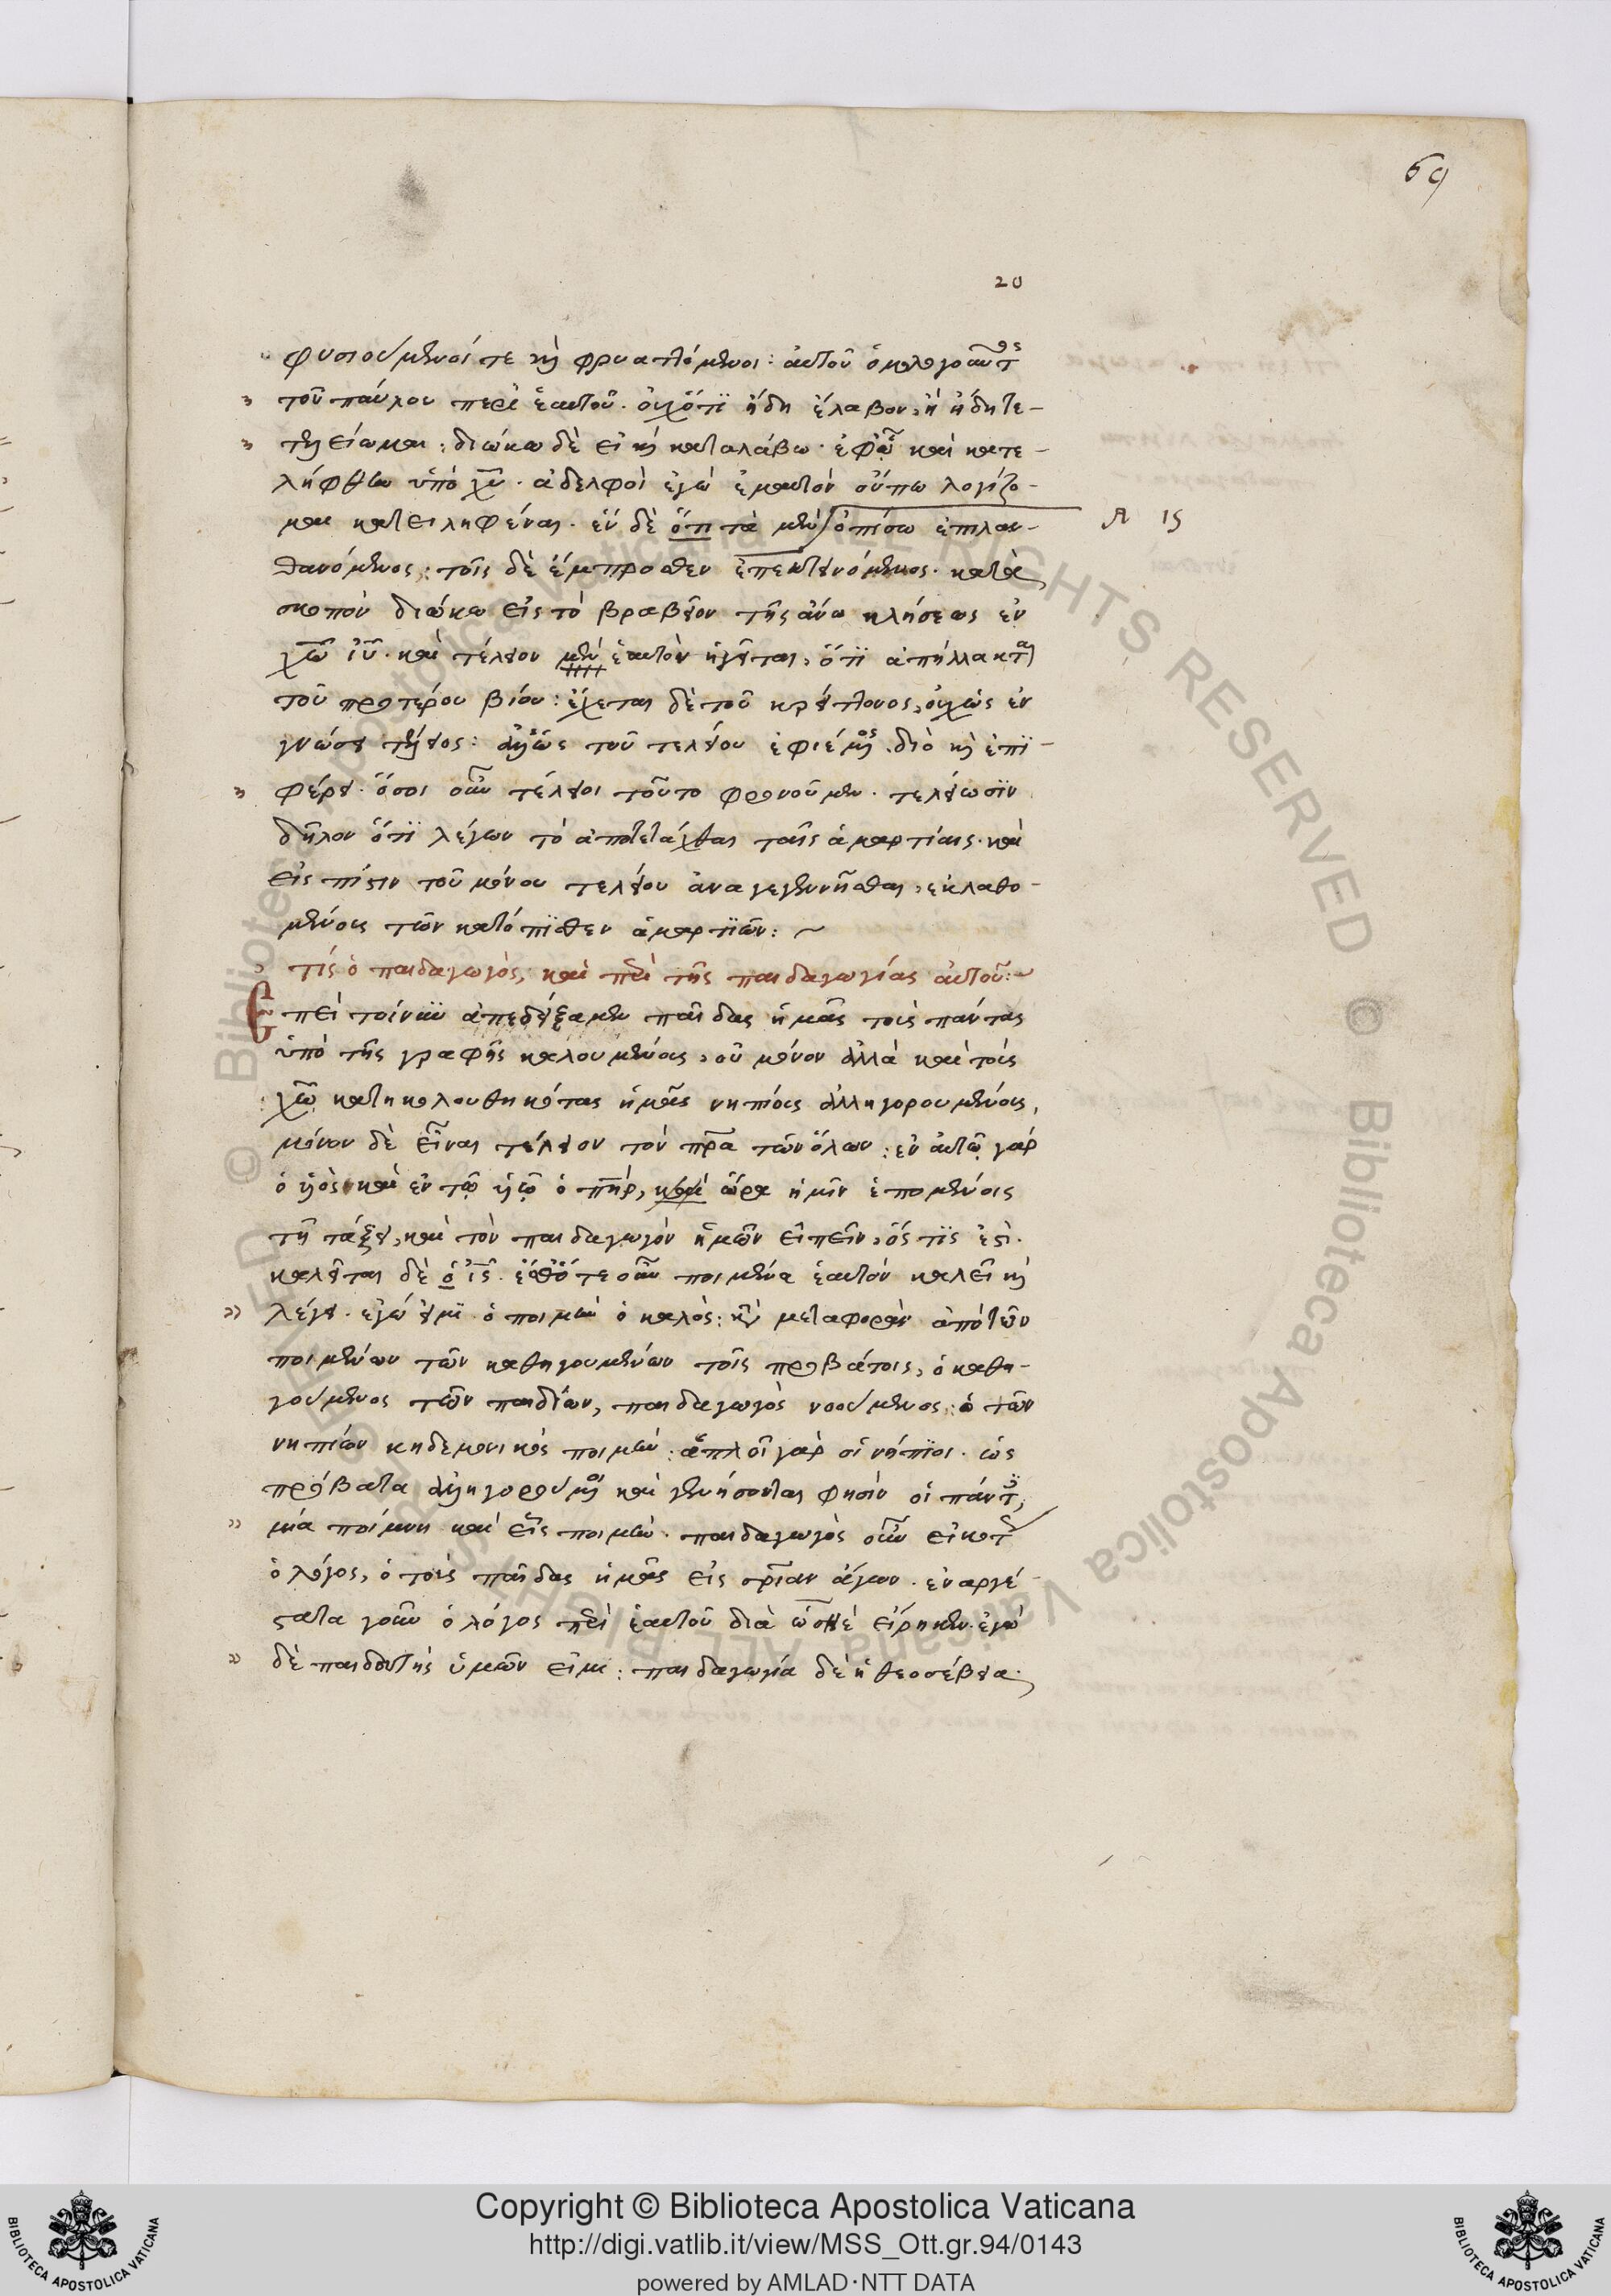 69
20
φυσιούμενοί τε καὶ φρυαττόμενοι: αὐτοῦ ὁμολογοῦντος
τοῦ παύλου περὶ ἑαυτοῦ. οὐχ ὅτι ἤδη ἔλαβον, ἢ ἤδη τε-
τελείωμαι: διώκω δὲ εἰ καὶ καταλάβω. ἐφ' ᾧ καὶ κατε-
λήφθην ὑπὸ χυ. ἀδελφοὶ ἐγὼ ἐμαυτὸν οὔπω λογίζο-
μαι κατειληφέναι. ἓν δὲ ὅτι τὰ μὲν ὀπίσω ἐπιλαν-
θανόμενος: τοῖς δὲ ἔμπροσθεν ἐπεκτεινόμενος. κατὰ
σκοπὸν διώκω εἰς τὸ βραβεῖον τῆς ἄνω κλήσεως ἐν
χω ιυ. καὶ τέλειον μὲν ἑαυτὸν ἡγεῖται, ὅτι ἀπήλλακται
τοῦ προτέρου βίου: ἔχεται δὲ τοῦ κρείττονος, οὐχ ὡς ἐν
γνώσει τέλειος: ἀλλ' ὡς τοῦ τελείου ἐφιέμενος. διὸ καὶ ἐπι-
φέρει. ὅσοι οὖν τέλειοι τοῦτο φρονοῦμεν. τελείωσιν
δῆλον ὅτι λέγων τὸ ἀποτετάχθαι ταῖς ἁμαρτίαις. καὶ
εἰς πίστιν τοῦ μόνου τελείου ἀναγεγεννῆσθαι, ἐκλαθο-
μένους τῶν κατόπισθεν ἁμαρτιῶν: ~
τίς ὁ παιδαγωγὸς, καὶ περὶ τῆς παιδαγωγίας αὐτοῦ: ~
Ἐπεὶ τοίνυν ἀπεδείξαμεν παῖδας ἡμᾶς τοὺς πάντας
ὑπὸ τῆς γραφῆς καλουμένους, οὐ μόνον ἀλλὰ καὶ τοὺς
χω κατηκολουθηκότας ἡμᾶς νηπίους ἀλληγορουμένους,
μόνον δὲ εἶναι τέλειον τὸν πρα τῶν ὅλων: ἐν αὐτῷ γὰρ
ὁ υἱὸς καὶ ἐν τῷ υἱῷ ὁ πηρ, καὶ ὥρα ἡμῖν ἑπομένοις
τῇ τάξει, καὶ τὸν παιδαγωγὸν ἡμῶν εἰπεῖν, ὅς τις ἐστί.
καλεῖται δὲ ὁ ις. ἔσθ' ὅτε οὖν ποιμένα ἑαυτὸν καλεῖ καὶ
λέγει. ἐγώ εἰμι ὁ ποιμὴν ὁ καλὸς: κατὰ μεταφορὰν ἀπὸ τῶν
ποιμένων τῶν καθηγουμένων τοῖς προβάτοις, ὁ καθη-
γούμενος τῶν παιδίων, παιδαγωγὸς νοούμενος, ὁ τῶν
νηπίων κηδεμονικὸς ποιμήν: ἁπλοῖ γὰρ οἱ νήπιοι. ὡς
πρόβατα ἀλληγορούμενοι καὶ γενήσονται φησὶν οἱ πάντες,
μία ποίμνη καὶ εἷς ποιμήν. παιδαγωγὸς οὖν εἰκότως
ὁ λόγος, ὁ τοὺς παῖδας ἡμᾶς εἰς σριαν ἄγων. ἐναργέ-
στατα γοῦν ὁ λόγος περὶ ἑαυτοῦ διὰ ὡσηὲ εἴρηκεν. ἐγὼ
δὲ παιδευτὴς ὑμῶν εἰμι: παιδαγωγία δὲ ἡ θεοσέβεια.
Copyright © Biblioteca Apostolica Vaticana
http://digi.vatlib.it/view/MSS_Ott.gr.94/0143
powered by AMLAD·NTT DATA